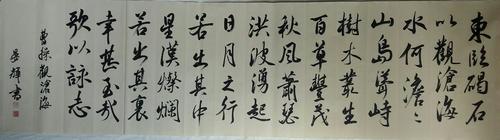 東臨碣石
以觀滄海
水何澹澹
山島聳峙
樹木叢生
百草豐茂
秋風蕭瑟
洪波湧起
日月之行
若出其中
星漢燦爛
若出其裏
幸甚至哉
歌以詠志
曹操觀滄海